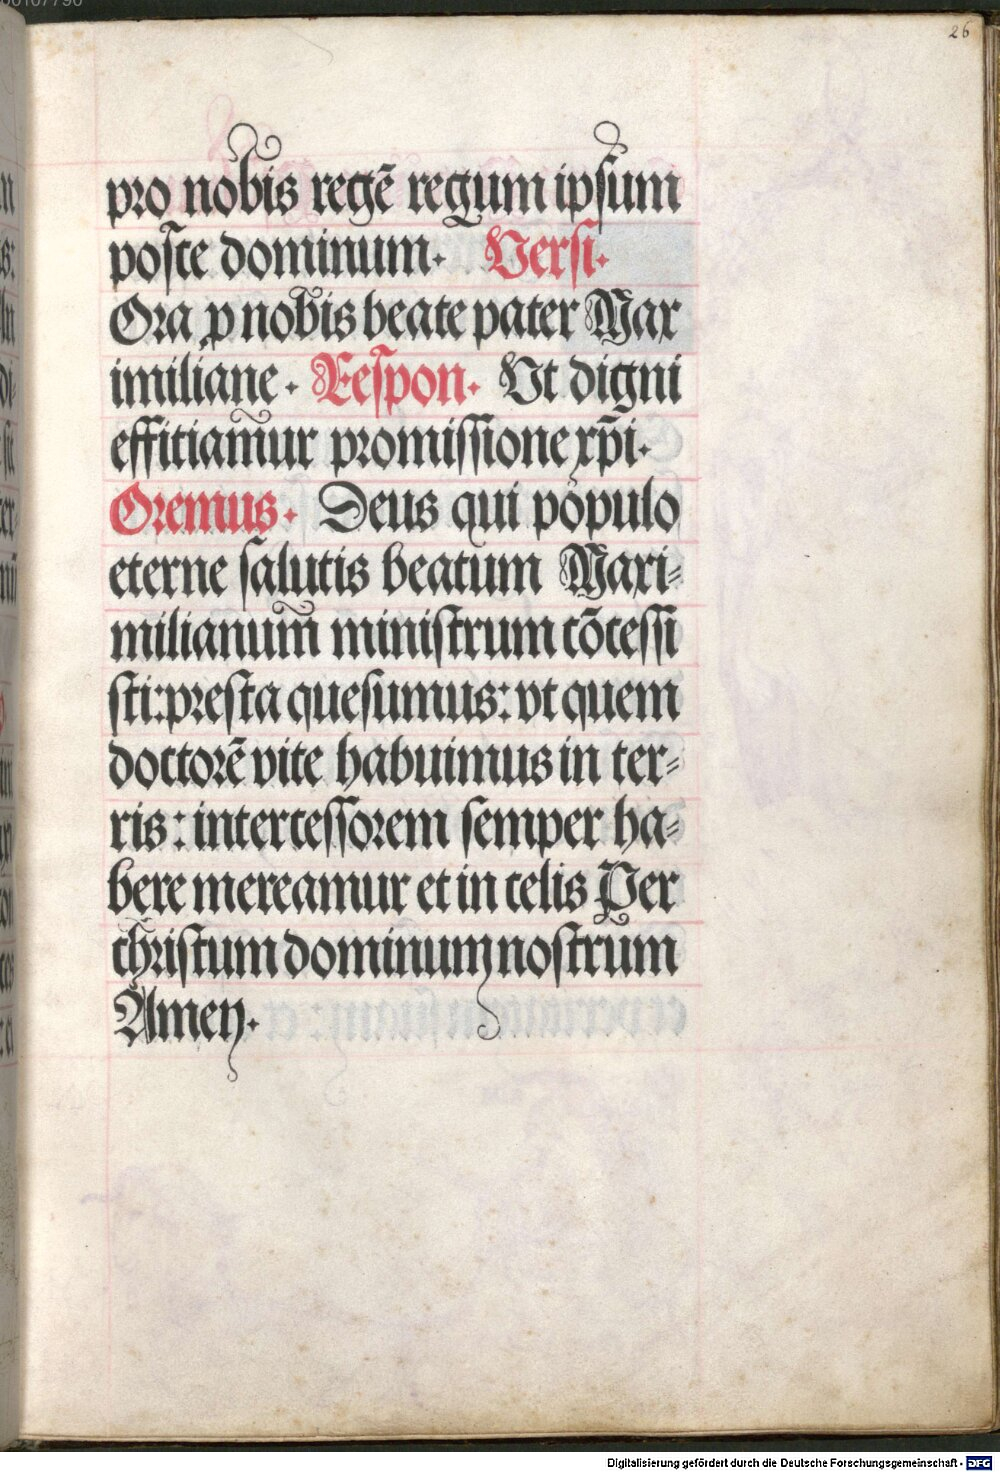 26
pro nobis regē regum ipsum
poste dominum. Versi.
Ora ꝓ nobis beate pater Max
imiliane. Respon. Vt digni
effitiamur promissione xp̄i.
Oremus. Deus qui populo
eterne salutis beatum Maxi=
milianum ministrum cōcessi
sti: presta quesumus: vt quem
doctorē vite habuimus in ter=
ris: intercessorem semper ha=
bere mereamur et in celis Per
christum dominum nostrum
Amen.
Digitalisierung gefördert durch die Deutsche Forschungsgemeinschaft - DFG